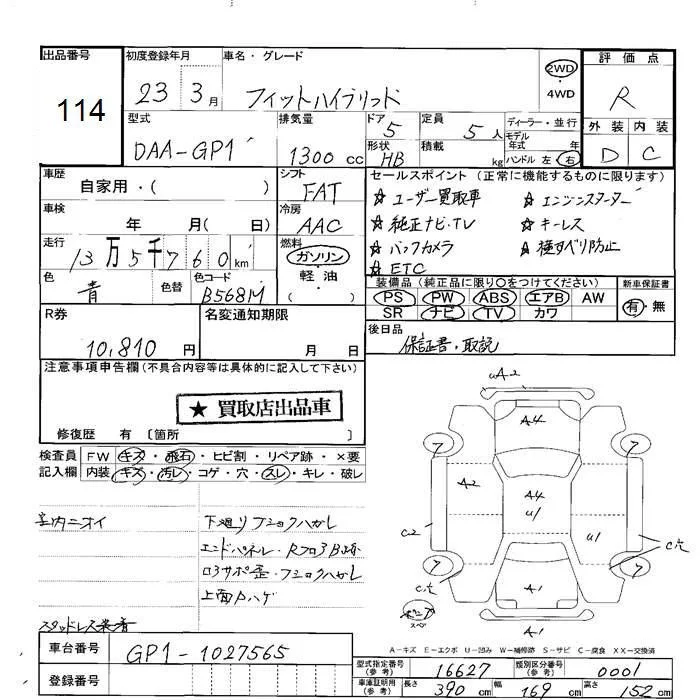 出品番号 初度登録年月 車名・グレード 評価点
114 23 3月 フィットハイブリッド 2WD ・4WD R
型式 排気量 ドア 定員 ディーラー・並行 外装 内装
DAA-GP1 1300cc 5 5人 モデル年式 年 D C
形状 HB 積載 kg ハンドル 左 右
車歴 シフト セールスポイント (正常に機能するものに限ります)
自家用・( ) FAT ☆ユーザー買取車 ☆エンジンスターター
車検 冷房 ☆純正ナビ・TV ☆キーレス
年 月(日) AAC ☆バックカメラ ☆横すべり防止
走行 燃料 ☆ETC
13万5千760km ガソリン・軽油・( )
色 色替 色コード 装備品(純正品に限り○をつけてください) 新車保証書
青 B568M PS PW ABS エアB AW 有・無
SR ナビ TV カワ
R券 名変通知期限 後日品
10,810円 月 日 保証書・取説
注意事項申告欄(不具合内容等は具体的に記入して下さい)
★買取店出品車
修復歴 有 〔箇所 〕
検査員 FW キズ・飛石・ヒビ割・リペア跡・×要
記入欄 内装 キズ・汚レ・コゲ・穴・スレ・キレ・破レ
室内ニオイ 下廻り
エンドパネル・
上面
スタッドレス装着
uA2
A4
ア ア
A2 A4
U1 U1
C2 C穴
ア ア
C穴 A1
スペア
A1
A-キズ E-エクボ U-凹み W-補修跡 S-サビ C-腐食 XX-交換済
車台番号 GP1-1027565
登録番号
型式指定番号(参考) 16627 類別区分番号(参考) 0001
車庫証明用(参考) 長さ 390cm 幅 169cm 高さ 152cm